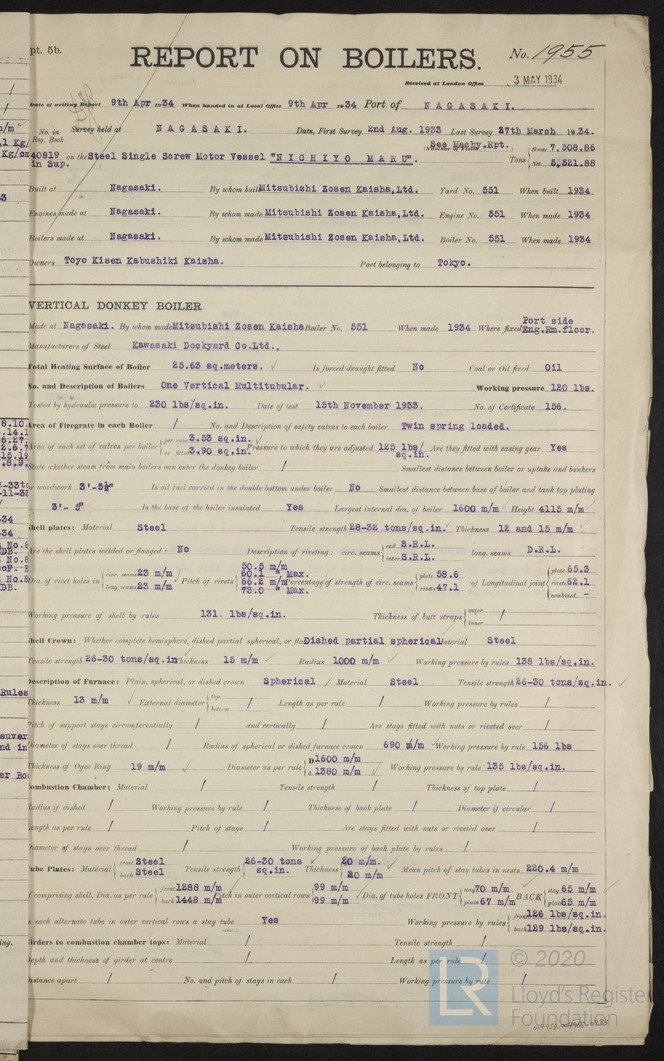 pt. 5b.
REPORT ON BOILERS.
No. 1955
Received at London Office 3 MAY 1934
Date of writing Report 9th Apr 1934 When handed in at Local Office 9th Apr 1934 Port of NAGASAKI.
No. in Reg. Book Survey held at NAGASAKI. Date, First Survey 2nd Aug. 1933 Last Survey 27th March 1934.
See Machy.Rpt.
40819 in Sup. on the Steel Single Screw Motor Vessel "NICHIYO MARU". Tons Gross 7,508.86 Net 5,521.88
Built at Nagasaki. By whom built Mitsubishi Zosen Kaisha,Ltd. Yard No. 551 When built 1934
Engines made at Nagasaki. By whom made Mitsubishi Zosen Kaisha,Ltd. Engine No. 551 When made 1934
Boilers made at Nagasaki. By whom made Mitsubishi Zosen Kaisha,Ltd. Boiler No. 551 When made 1934
Owners Toyo Kisen Kabushiki Kaisha. Port belonging to Tokyo.
VERTICAL DONKEY BOILER
Made at Nagasaki. By whom made Mitsubishi Zosen Kaisha Boiler No. 551 When made 1934 Where fixed Port side Eng.Rm.floor.
Manufacturers of Steel Kawasaki Dockyard Co.Ltd.,
Total Heating Surface of Boiler 25.63 sq.meters. Is forced draught fitted No Coal or Oil fired Oil
No. and Description of Boilers One Vertical Multitubular. Working pressure 120 lbs.
Tested by hydraulic pressure to 230 lbs/sq.in. Date of test 15th November 1933. No. of Certificate 156.
Area of Firegrate in each Boiler / No. and Description of safety valves to each boiler Twin spring loaded.
Area of each set of valves per boiler per rule 3.53 sq.in. as fitted 3.90 sq.in. Pressure to which they are adjusted 125 lbs/sq.in. Are they fitted with easing gear Yes
State whether steam from main boilers can enter the donkey boiler / Smallest distance between boiler or uptake and bunkers
or woodwork 3'-5½" Is oil fuel carried in the double bottom under boiler No Smallest distance between base of boiler and tank top plating
3'- 5" Is the base of the boiler insulated Yes Largest internal dia. of boiler 1600 m/m Height 4115 m/m
Shell plates: Material Steel Tensile strength 28-32 tons/sq.in. Thickness 12 and 15 m/m
Are the shell plates welded or flanged No Description of riveting: circ. seams end S.R.L. inter. S.R.L. long. seams D.R.L.
Dia. of rivet holes in circ. seams 23 m/m long. seams 23 m/m Pitch of rivets 50.5 m/m 60.1 " Max. 66.2 m/m 73.0 " Max. Percentage of strength of circ. seams plate 58.6 rivets 47.1 of Longitudinal joint plate 65.3 rivets 62.1 combined. -
Working pressure of shell by rules 131. lbs/sq.in. Thickness of butt straps outer inner /
Shell Crown: Whether complete hemisphere, dished partial spherical, or flat Dished partial spherical Material Steel
Tensile strength 26-30 tons/sq.in Thickness 15 m/m Radius 1000 m/m Working pressure by rules 138 lbs/sq.in.
Description of Furnace: Plain, spherical, or dished crown Spherical Material Steel Tensile strength 26-30 tons/sq.in.
Thickness 13 m/m External diameter top bottom / Length as per rule / Working pressure by rules /
Pitch of support stays circumferentially / and vertically / Are stays fitted with nuts or riveted over /
Diameter of stays over thread / Radius of spherical or dished furnace crown 690 m/m Working pressure by rule 156 lbs
Thickness of Ogee Ring 19 m/m Diameter as per rule D 1600 m/m d 1380 m/m Working pressure by rule 135 lbs/sq.in.
Combustion Chamber: Material / Tensile strength / Thickness of top plate /
Radius if dished / Working pressure by rule / Thickness of back plate / Diameter if circular /
Length as per rule / Pitch of stays / Are stays fitted with nuts or riveted over /
Diameter of stays over thread / Working pressure of back plate by rules /
Tube Plates: Material front Steel back Steel Tensile strength 26-30 tons sq.in. Thickness 20 m/m. 20 m/m Mean pitch of stay tubes in nests 220.4 m/m
If comprising shell, Dia. as per rule front 1288 m/m back 1448 m/m Pitch in outer vertical rows 99 m/m 99 m/m Dia. of tube holes FRONT stay 70 m/m plain 67 m/m BACK stay 65 m/m plain 65 m/m
Is each alternate tube in outer vertical rows a stay tube Yes Working pressure by rules front 126 lbs/sq.in. back 129 lbs/sq.in.
Girders to combustion chamber tops: Material / Tensile strength /
Depth and thickness of girder at centre / Length as per rule /
Distance apart / No. and pitch of stays in each / Working pressure by rule /
LR © 2020
Lloyd's Register
Foundation